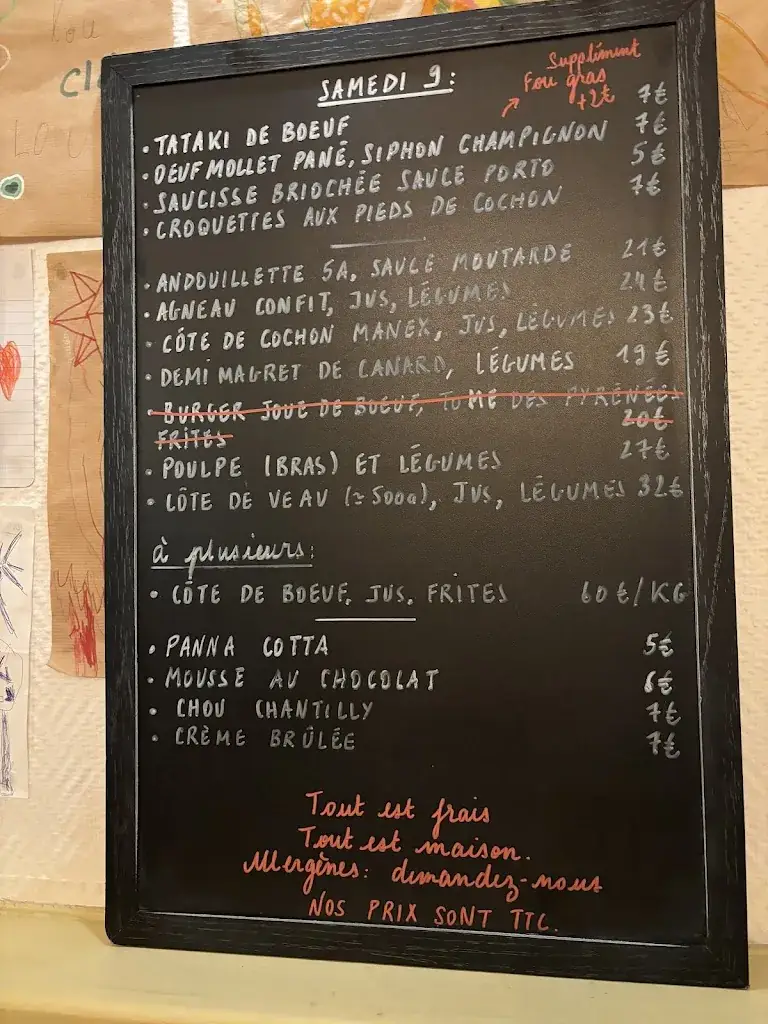 SAMEDI 9:
Supplément
Fou gras
+2€
• TATAKI DE BOEUF 7€
• OEUF MOLLET PANÉ, SIPHON CHAMPIGNON 7€
• SAUCISSE BRIOCHÉE SAUCE PORTO 5€
• CROQUETTES AUX PIEDS DE COCHON 7€
• ANDOUILLETTE 5A, SAUCE MOUTARDE 21€
• AGNEAU CONFIT, JUS, LÉGUMES 24€
• CÔTE DE COCHON MANEX, JUS, LÉGUMES 23€
• DEMI MAGRET DE CANARD, LÉGUMES 19€
• BURGER JOUE DE BOEUF, TOME DES PYRÉNÉES
FRITES 20€
• POULPE (BRAS) ET LÉGUMES 27€
• CÔTE DE VEAU (≃500g), JUS, LÉGUMES 32€
à plusieurs:
• CÔTE DE BOEUF, JUS, FRITES 60€/KG
• PANNA COTTA 5€
• MOUSSE AU CHOCOLAT 6€
• CHOU CHANTILLY 7€
• CRÈME BRÛLÉE 7€
Tout est frais
Tout est maison.
Allergènes: demandez-nous
NOS PRIX SONT TTC.